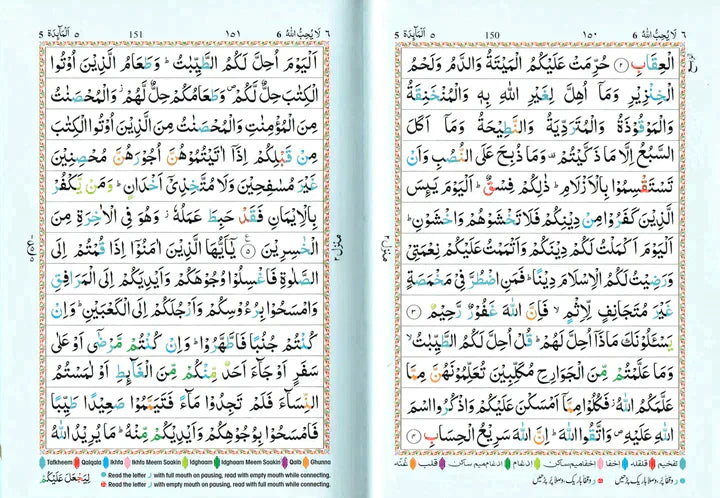 ٦ لَا يُحِبُّ اللهُ 6 ١٥٠ 150 اَلْمَآئِدَة ٥ 5
الْعِقَابِ ﴿٢﴾ حُرِّمَتْ عَلَيْكُمُ الْمَيْتَةُ وَالدَّمُ وَلَحْمُ
الْخِنْزِيْرِ وَمَاۤ اُهِلَّ لِغَيْرِ اللهِ بِهٖ وَالْمُنْخَنِقَةُ
وَالْمَوْقُوْذَةُ وَالْمُتَرَدِّيَةُ وَالنَّطِيْحَةُ وَمَاۤ اَكَلَ
السَّبُعُ اِلَّا مَا ذَكَّيْتُمْ ۫ وَمَا ذُبِحَ عَلَى النُّصُبِ وَاَنْ
تَسْتَقْسِمُوْا بِالْاَزْلَامِ ؕ ذٰلِكُمْ فِسْقٌ ؕ اَلْيَوْمَ يَىِٕسَ
الَّذِيْنَ كَفَرُوْا مِنْ دِيْنِكُمْ فَلَا تَخْشَوْهُمْ وَاخْشَوْنِ ؕ
اَلْيَوْمَ اَكْمَلْتُ لَكُمْ دِيْنَكُمْ وَاَتْمَمْتُ عَلَيْكُمْ نِعْمَتِيْ
وَرَضِيْتُ لَكُمُ الْاِسْلَامَ دِيْنًا ؕ فَمَنِ اضْطُرَّ فِيْ مَخْمَصَةٍ
غَيْرَ مُتَجَانِفٍ لِّاِثْمٍ ۙ فَاِنَّ اللهَ غَفُوْرٌ رَّحِيْمٌ ﴿٣﴾
يَسْـَٔلُوْنَكَ مَاذَاۤ اُحِلَّ لَهُمْ ؕ قُلْ اُحِلَّ لَكُمُ الطَّيِّبٰتُ ۙ
وَمَا عَلَّمْتُمْ مِّنَ الْجَوَارِحِ مُكَلِّبِيْنَ تُعَلِّمُوْنَهُنَّ مِمَّا
عَلَّمَكُمُ اللهُ ؗ فَكُلُوْا مِمَّاۤ اَمْسَكْنَ عَلَيْكُمْ وَاذْكُرُوا اسْمَ
اللهِ عَلَيْهِ ۪ وَاتَّقُوا اللهَ ؕ اِنَّ اللهَ سَرِيْعُ الْحِسَابِ ﴿٤﴾
منزل ٢
تفخیم قلقله اخفا اخفا میم ساکن ادغام ادغام میم ساکن قلب غنّه
٦ لَا يُحِبُّ اللهُ 6 ١٥١ 151 اَلْمَآئِدَة ٥ 5
اَلْيَوْمَ اُحِلَّ لَكُمُ الطَّيِّبٰتُ ؕ وَطَعَامُ الَّذِيْنَ اُوْتُوا
الْكِتٰبَ حِلٌّ لَّكُمْ ۪ وَطَعَامُكُمْ حِلٌّ لَّهُمْ ؗ وَالْمُحْصَنٰتُ
مِنَ الْمُؤْمِنٰتِ وَالْمُحْصَنٰتُ مِنَ الَّذِيْنَ اُوْتُوا الْكِتٰبَ
مِنْ قَبْلِكُمْ اِذَاۤ اٰتَيْتُمُوْهُنَّ اُجُوْرَهُنَّ مُحْصِنِيْنَ
غَيْرَ مُسٰفِحِيْنَ وَلَا مُتَّخِذِيْۤ اَخْدَانٍ ؕ وَمَنْ يَّكْفُرْ
بِالْاِيْمَانِ فَقَدْ حَبِطَ عَمَلُهٗ ؗ وَهُوَ فِي الْاٰخِرَةِ مِنَ
الْخٰسِرِيْنَ ﴿٥﴾ يٰۤاَيُّهَا الَّذِيْنَ اٰمَنُوْۤا اِذَا قُمْتُمْ اِلَى
الصَّلٰوةِ فَاغْسِلُوْا وُجُوْهَكُمْ وَاَيْدِيَكُمْ اِلَى الْمَرَافِقِ
وَامْسَحُوْا بِرُءُوْسِكُمْ وَاَرْجُلَكُمْ اِلَى الْكَعْبَيْنِ ؕ وَاِنْ
كُنْتُمْ جُنُبًا فَاطَّهَّرُوْا ؕ وَاِنْ كُنْتُمْ مَّرْضٰۤى اَوْ عَلٰى
سَفَرٍ اَوْ جَآءَ اَحَدٌ مِّنْكُمْ مِّنَ الْغَآىِٕطِ اَوْ لٰمَسْتُمُ
النِّسَآءَ فَلَمْ تَجِدُوْا مَآءً فَتَيَمَّمُوْا صَعِيْدًا طَيِّبًا
فَامْسَحُوْا بِوُجُوْهِكُمْ وَاَيْدِيْكُمْ مِّنْهُ ؕ مَا يُرِيْدُ اللهُ
لِيَجْعَلَ عَلَيْكُمْ
منزل ٢
Tafkheem Qalqala Ikhfa Ikhfa Meem Saakin Idghaam Idghaam Meem Saakin Qalb Ghunna
Read the letter ر with full mouth on pausing, read with empty mouth while connecting.
Read the letter ر with empty mouth on pausing, read with full mouth while connecting.